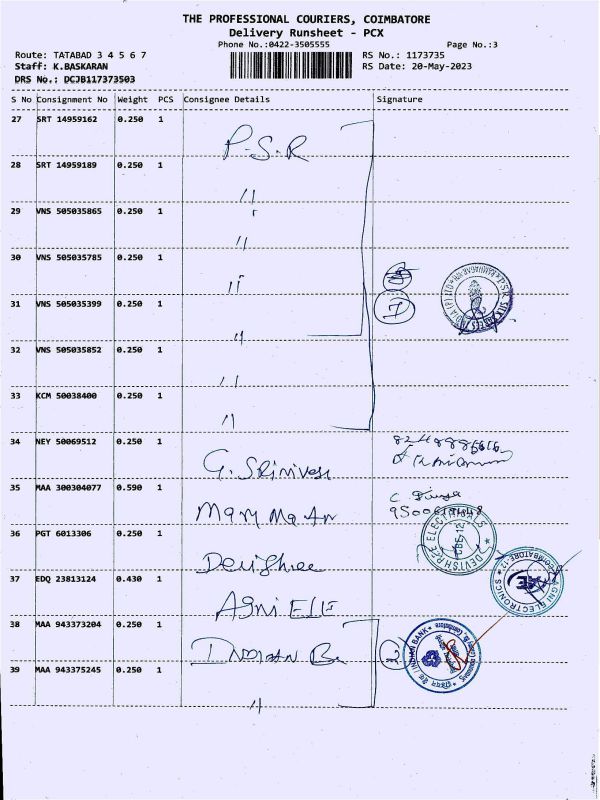 THE PROFESSIONAL COURIERS, COIMBATORE
Delivery Runsheet - PCX
Phone No.:0422-3505555 Page No.:3
Route: TATABAD 3 4 5 6 7 RS No.: 1173735
Staff: K.BASKARAN RS Date: 20-May-2023
DRS No.: DCJB117373503
S No Consignment No Weight PCS Consignee Details Signature
27 SRT 14959162 0.250 1
P.S.R
28 SRT 14959189 0.250 1
"
29 VNS 505035865 0.250 1
"
30 VNS 505035785 0.250 1
"
31 VNS 505035399 0.250 1
7
"
32 VNS 505035852 0.250 1
"
33 KCM 50038400 0.250 1
"
34 NEY 50069512 0.250 1
G. Srinivas
35 MAA 300304077 0.590 1
Mary Ma
36 PGT 6013306 0.250 1
DEVISHREE ELECTRICALS
CBE-12
Devishree
37 EDQ 23813124 0.430 1
AGNI ELECTRONICS
COIMBATORE-12
Agni ELE
38 MAA 943373204 0.250 1
INDIAN BANK
Indian B.
2
39 MAA 943375245 0.250 1
"